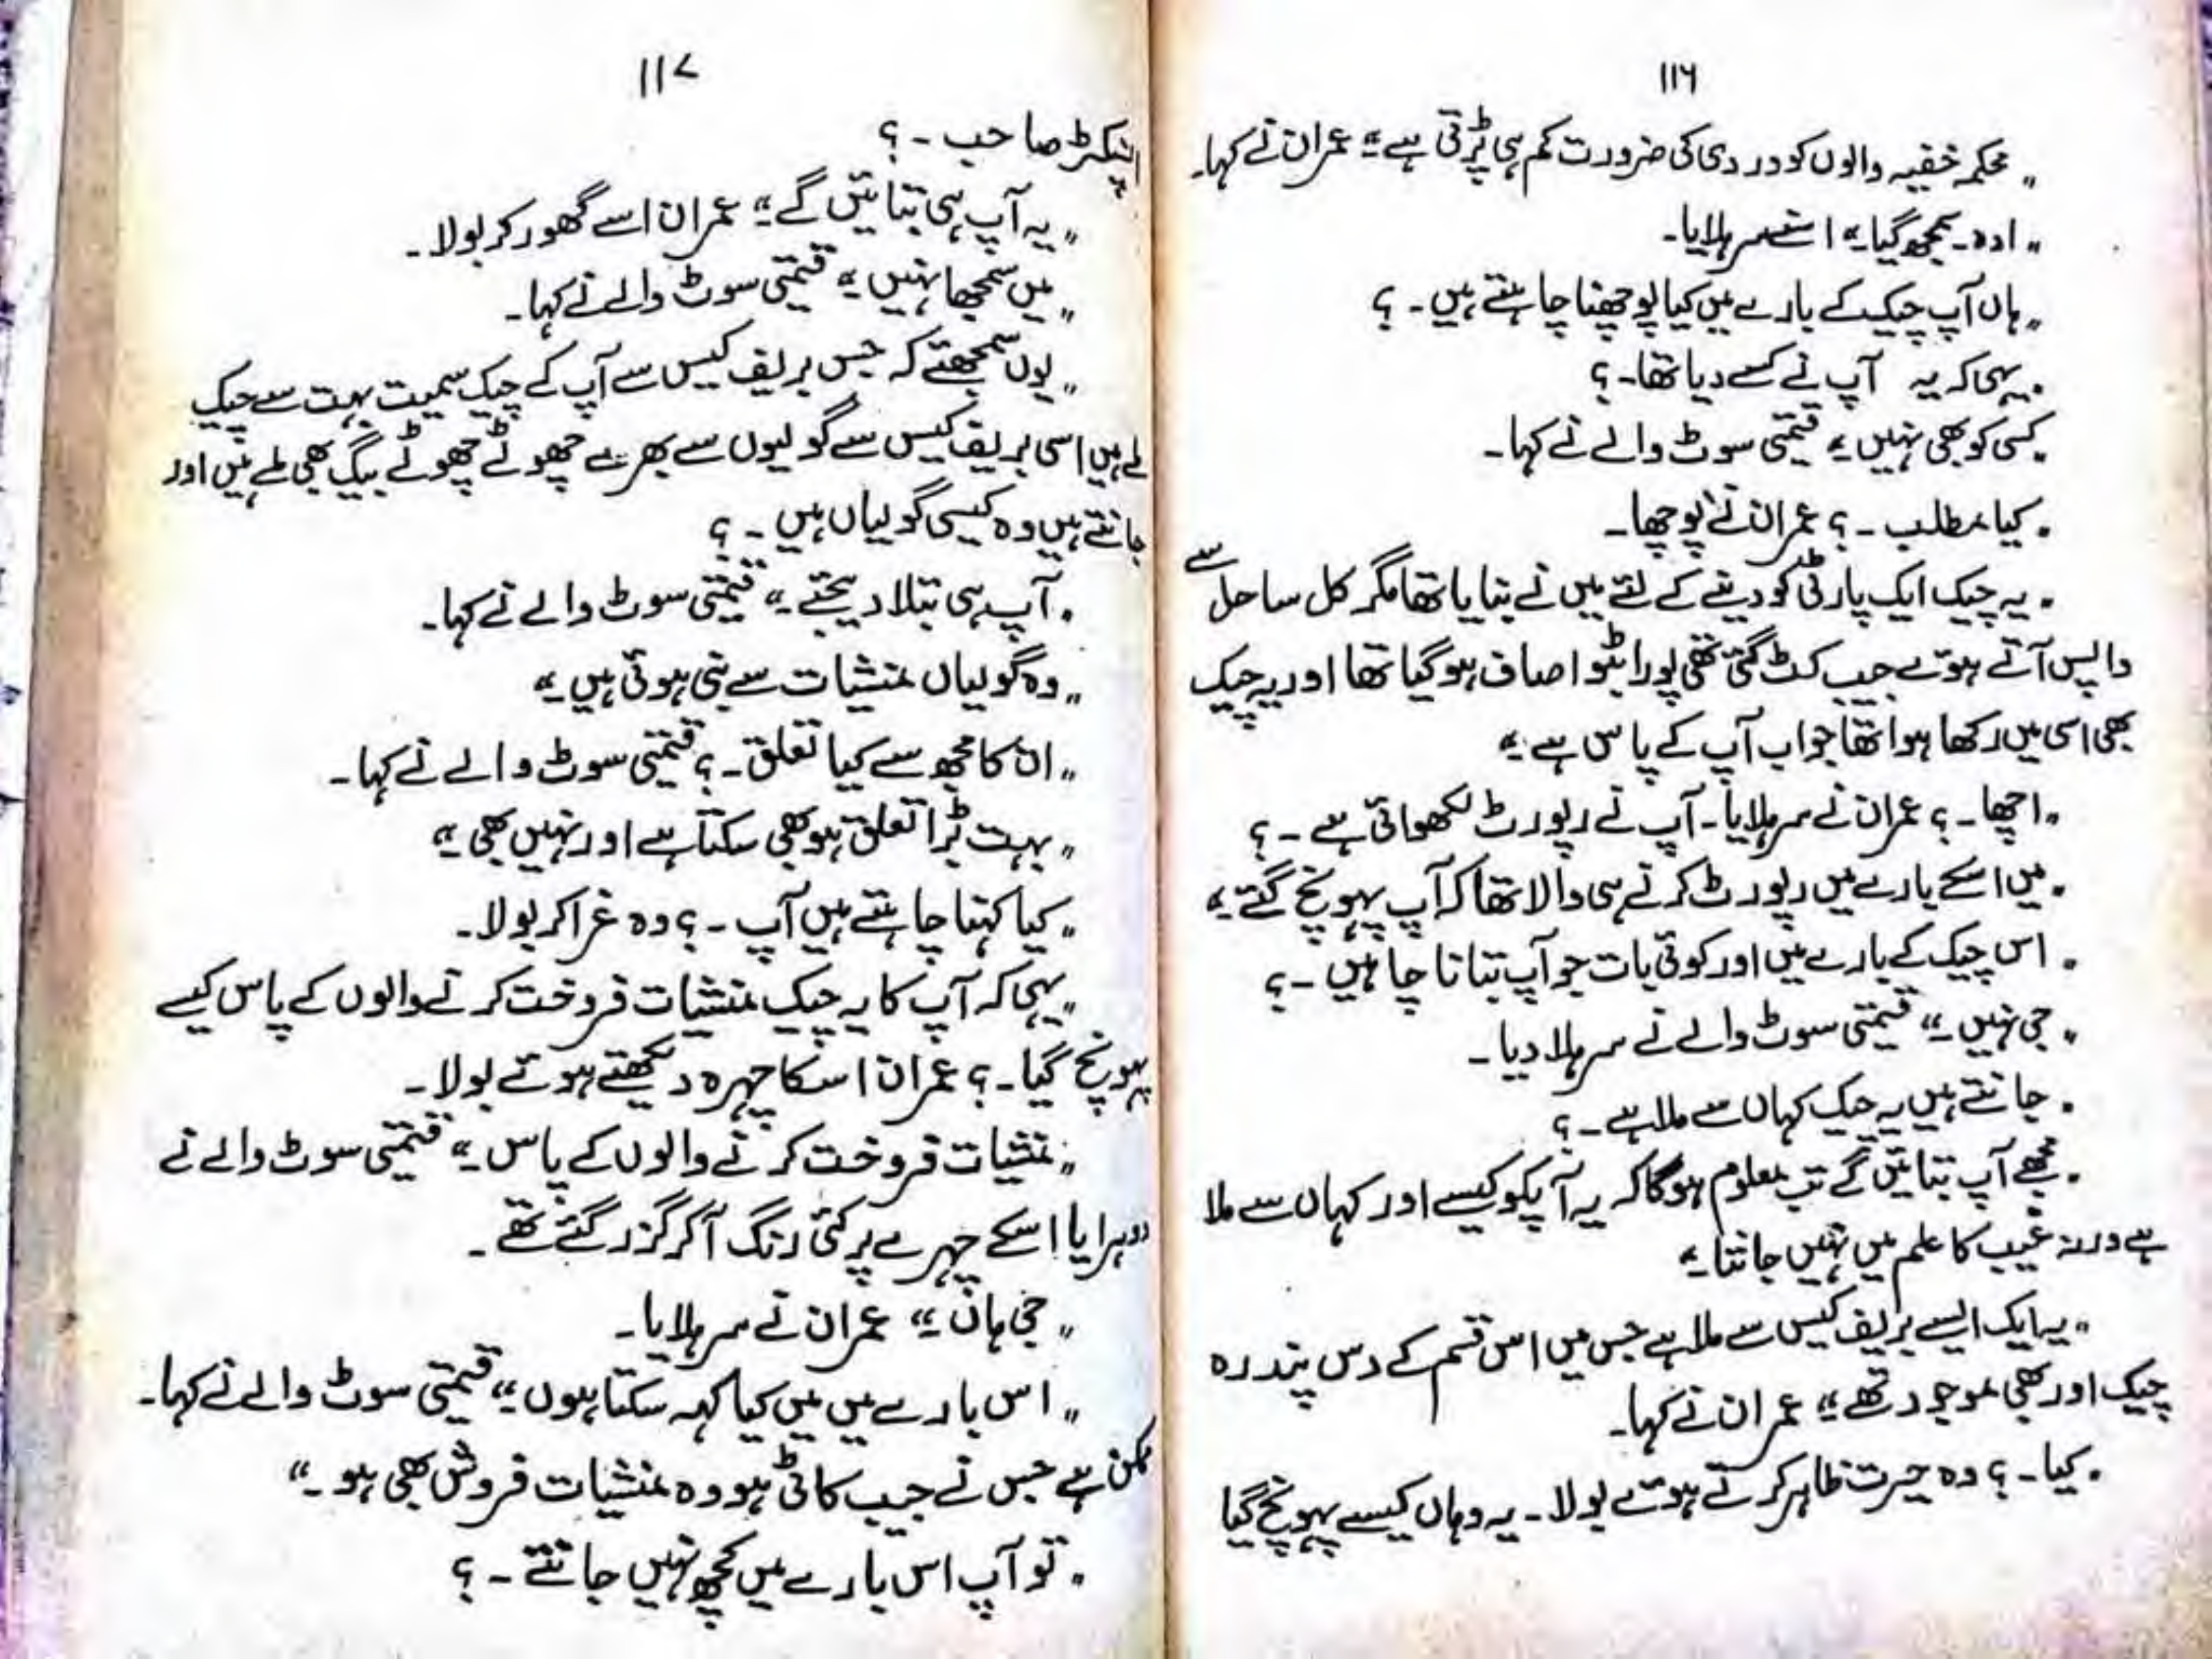 ۱۱۶
„ محکمہ خفیہ والوں کو وردی کی ضرورت کم ہی پڑتی ہے ۔“ عمران نے کہا۔
„ اوہ ۔ سمجھ گیا ۔“ اسنے سر ہلایا۔
„ ہاں آپ چیک کے بارے میں کیا پوچھنا چاہتے ہیں ۔ ؟
„ یہی کہ یہ آپ نے کسے دیا تھا۔ ؟
„ کسی کو بھی نہیں ۔“ قیمتی سوٹ والے نے کہا۔
„ کیا مطلب ۔ ؟ عمران نے پوچھا۔
„ یہ چیک ایک پارٹی کو دینے کے لئے میں نے بنایا تھا مگر کل ساحل سے
واپس آتے ہوئے جیب کٹ گئی تھی پورا بٹوا صاف ہو گیا تھا اور یہ چیک
بھی اسی میں رکھا ہوا تھا جو اب آپ کے پاس ہے ۔“
„ اچھا ۔ ؟ عمران نے سر ہلایا۔ آپ نے رپورٹ لکھوائی ہے ۔ ؟
„ میں اسکے بارے میں رپورٹ کرنے ہی والا تھا کہ آپ پہونچ گئے ۔“
„ اس چیک کے بارے میں اور کوئی بات جو آپ بتانا چاہیں ۔ ؟
„ جی نہیں ۔“ قیمتی سوٹ والے نے سر ہلا دیا ۔
„ جانتے ہیں یہ چیک کہاں سے ملا ہے ۔ ؟
„ مجھے آپ بتائیں گے تب معلوم ہوگا کہ یہ آپکو کیسے اور کہاں سے ملا
ہے ورنہ غیب کا علم میں نہیں جانتا ۔“
„ یہ ایک ایسے بریف کیس سے ملا ہے جس میں اس قسم کے دس پندرہ
چیک اور بھی موجود تھے ۔“ عمران نے کہا۔
„ کیا ۔ ؟ وہ حیرت ظاہر کرتے ہوئے بولا ۔ یہ وہاں کیسے پہونچ گیا
۱۱۷
انسپکٹر صاحب ۔ ؟
„ یہ آپ ہی بتائیں گے ۔“ عمران اسے گھور کر بولا ۔
„ میں سمجھا نہیں ۔“ قیمتی سوٹ والے نے کہا۔
„ یوں سمجھئے کہ جس بریف کیس سے آپ کے چیک سمیت بہت سے چیک
ملے ہیں اسی بریف کیس سے گولیوں سے بھرے چھوٹے چھوٹے بیگ بھی ملے ہیں اور
جانتے ہیں وہ کیسی گولیاں ہیں ۔ ؟
„ آپ ہی بتلا دیجئے ۔“ قیمتی سوٹ والے نے کہا۔
„ وہ گولیاں منشیات سے بنی ہوئی ہیں ۔“
„ ان کا مجھ سے کیا تعلق ۔ ؟ قیمتی سوٹ والے نے کہا ۔
„ بہت بڑا تعلق ہو بھی سکتا ہے اور نہیں بھی ۔“
„ کیا کہنا چاہتے ہیں آپ ۔ ؟ وہ غرا کر بولا ۔
„ یہی کہ آپ کا یہ چیک منشیات فروخت کرنے والوں کے پاس کیسے
پہونچ گیا ۔ ؟ عمران اسکا چہرہ دیکھتے ہوئے بولا ۔
„ منشیات فروخت کرنے والوں کے پاس ۔“ قیمتی سوٹ والے نے
دوہرایا اسکے چہرے پر کئی رنگ آ کر گزر گئے تھے ۔
„ جی ہاں ۔“ عمران نے سر ہلایا ۔
„ اس بارے میں میں کیا کہہ سکتا ہوں ۔“ قیمتی سوٹ والے نے کہا۔
ممکن ہے جس نے جیب کاٹی ہو وہ منشیات فروش بھی ہو ۔“
„ تو آپ اس بارے میں کچھ نہیں جانتے ۔ ؟